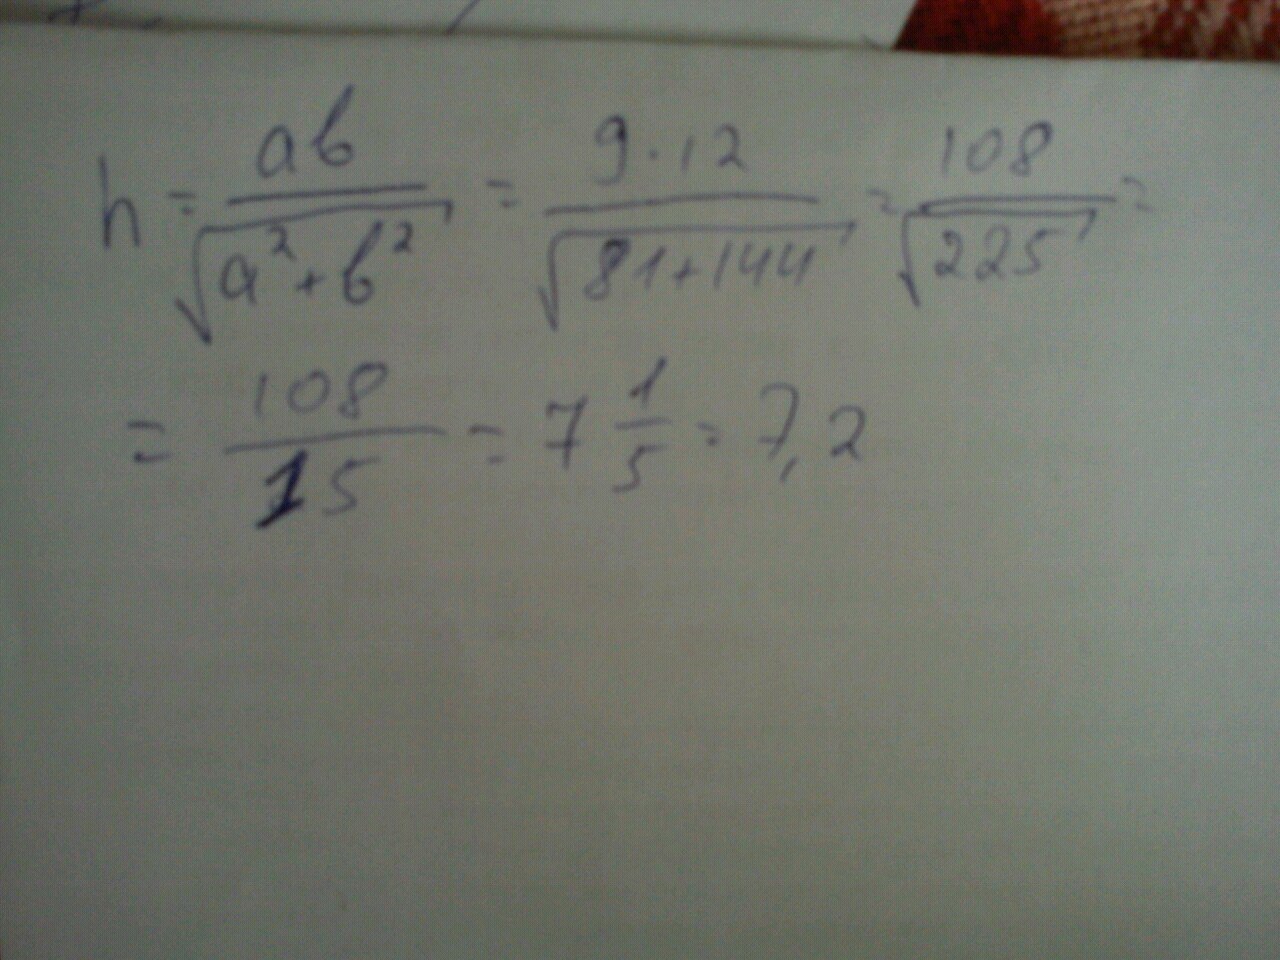 h = ab / √(a² + b²) = 9·12 / √(81+144) = 108 / √225 =
= 108 / 15 = 7 1/5 = 7,2